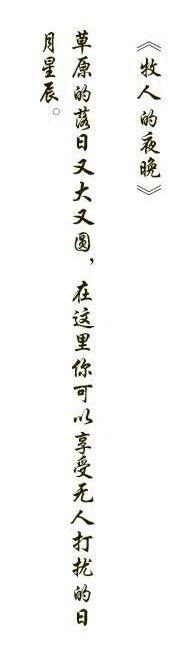 《牧人的夜晚》
草原的落日又大又圆，在这里你可以享受无人打扰的日
月星辰。